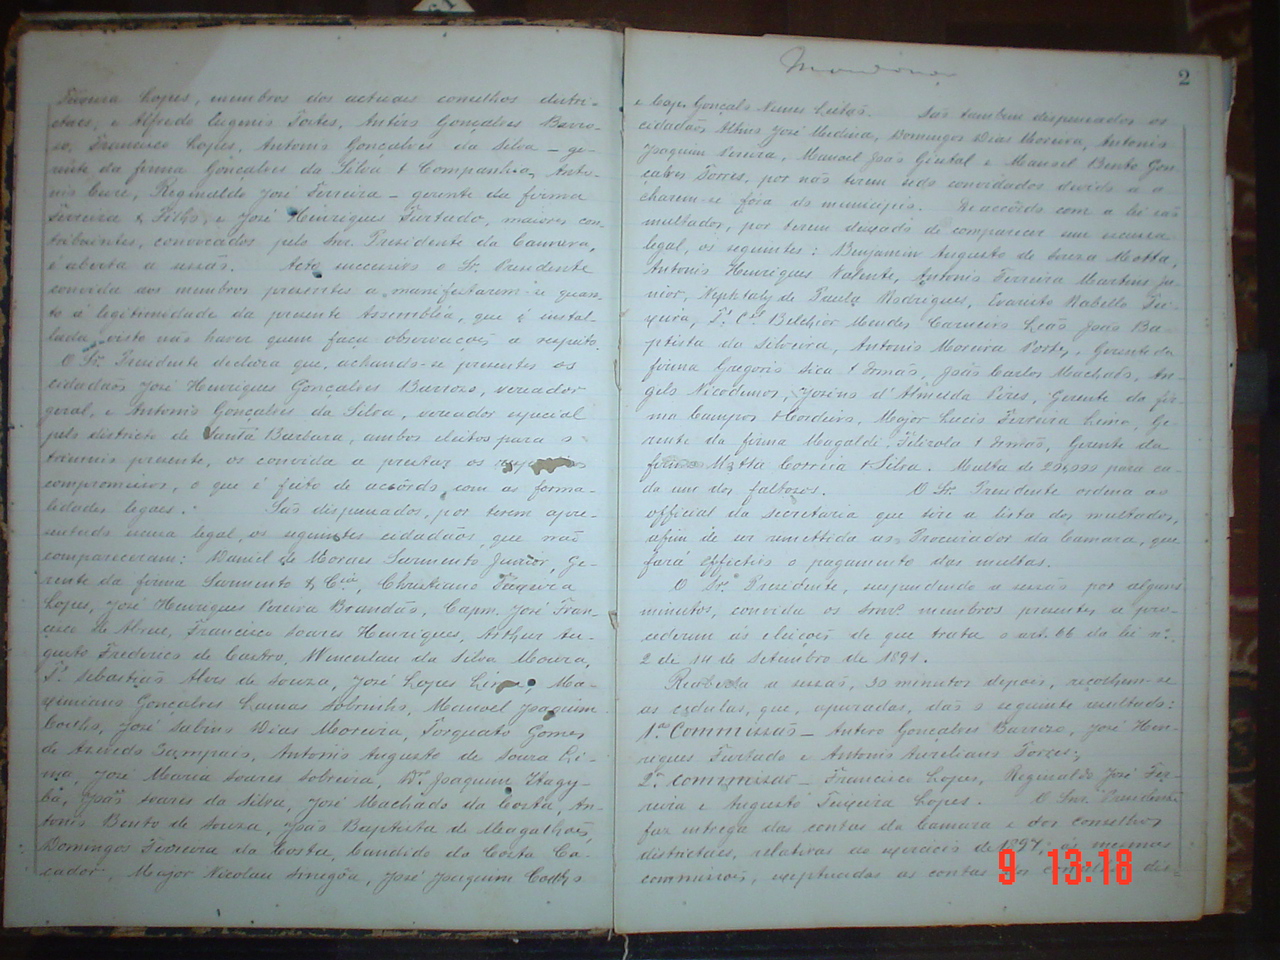 Teixeira Lopes, membros dos actuaes conselhos distri-
ctaes, e Alfredo Eugenio Fortes, Antero Gonçalves Barro-
so, Francisco Lopes, Antonio Gonçalves da Silva – ge-
rente da firma Gonçalves da Silva & Companhia, Anto-
nio Cure, Reginaldo José Ferreira – gerente da firma
Ferreira & Filho, e José Henriques Furtado, maiores con-
tribuintes, convocados pelo Snr. Presidente da Camara,
é aberta a sessão. Acto successivo o Sr. Presidente
convida aos membros presentes a manifestarem-se quan-
to á legitimidade da presente Assembléa, que é instal-
lada visto não haver quem faça observações a respeito.
O Sr. Presidente declara que, achando-se presentes os
cidadãos José Henriques Gonçalves Barroso, vereador
geral, e Antonio Gonçalves da Silva, vereador especial
pelo districto de Santa Barbara, ambos eleitos para o
triennio presente, os convida a prestar os
compromissos, o que é feito de accôrdo com as forma-
lidades legaes. São dispensados, por terem apre-
sentado escusa legal, os seguintes cidadãos, que não
compareceram: Daniel de Moraes Sarmento Junior, Ge-
rente da firma Sarmento & Cia, Christiano Teixeira
Lopes, José Henriques Pereira Brandão, Capm. José Fran-
cisco de Abreu, Francisco Soares Henriques, Arthur Au-
gusto Frederico de Castro, Wenceslau da Silva Moura,
Sebastião Alves de Souza, José Lopes Ma-
ximiano Gonçalves Lamas Sobrinho, Manoel Joaquim
Coelho, José Sabino Dias Moreira, Torquato Gomes
de Azevedo Sampaio, Antonio Augusto de Souza Li-
ma, José Maria Soares Sobreira, Dr. Joaquim Itagy-
ba, João Soares da Silva, José Machado da Costa, An-
tonio Bento de Souza, João Baptista de Magalhães,
Domingos Ferreira da Costa, Candido da Costa Ca-
çador, Major Nicolau José Joaquim Coelho
2
e Cap. Gonçalo Nunes Leitão. São tambem dispensados os
cidadãos José Medina, Domingos Dias Moreira, Antonio
Joaquim Pereira, Manoel João Gental e Manoel Bento Gon-
çalves Torres, por não terem sido convidados devido a a-
charem-se fóra do municipio. De accôrdo com a lei são
multados, por terem deixado de comparecer sem escusa
legal, os seguintes: Benjamin Augusto de Souza Motta,
Antonio Henriques Valente, Antonio Ferreira Martins Ju-
nior, Nephtaly de Paula Rodrigues, Evaristo Rabello Tei-
xeira, Belchior Mendes Carneiro Leão João Ba-
ptista da Silveira, Antonio Moreira Portes, Gerente da
firma Gregorio Sica & Irmão, João Carlos Machado, An-
gelo Nicodemos, d'Almeida Pires, Gerente da fir-
ma Campos & Cordeiro, Major Lucio Ferreira Lima, Ge-
rente da firma Magaldi, Filizola & Irmão, Gerente da
firma Motta Correia & Silva. Multa de para ca-
da um dos faltosos. O Sr. Presidente ordena ao
official da Secretaria que tire a lista dos multados,
afim de ser remettida ao Procurador da Camara, que
fará effectivo o pagamento das multas.
O Sr. Presidente, suspendendo a sessão por alguns
minutos, convida os Snres membros presentes a pro-
cederem ás eleições de que trata o art. 66 da lei nº
2 de 14 de Setembro de 1891.
Reaberta a sessão, 30 minutos depois, recolhem-se
as cedulas, que, apuradas, dão o seguinte resultado:
1ª Commissão – Antero Gonçalves Barroso, José Hen-
riques Furtado e Antonio Aureliano
2ª Commissão – Francisco Lopes, Reginaldo José Fer-
reira e Augusto Teixeira Lopes. O Snr. Presidente
faz entrega das contas da Camara e dos conselhos
districtaes, relativas ao exercicio de 1897, ás mesmas
commissões, exceptuadas as contas dos dis-
9 13:18